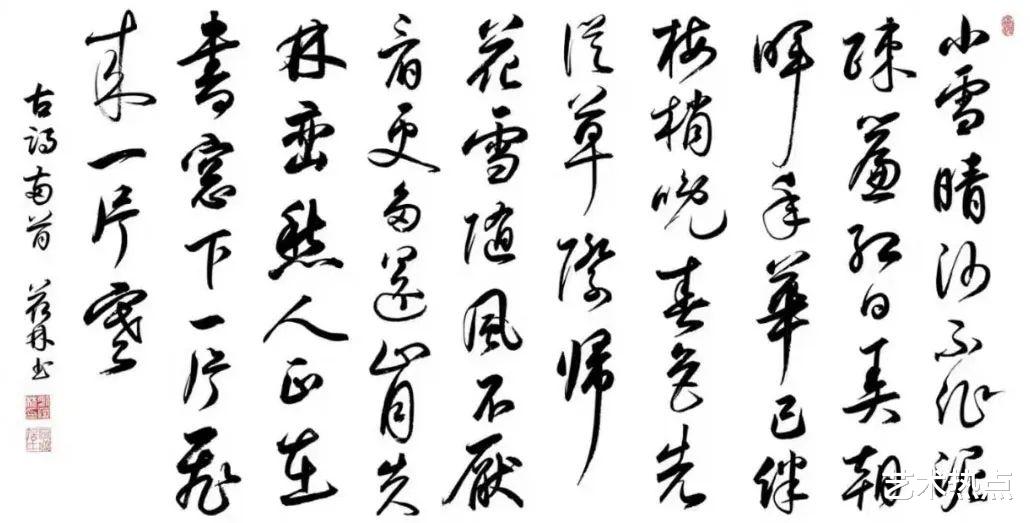 小雪晴沙不作泥
疎簾红日弄朝
暉年華已伴
梅梢晚春色先
從草際歸
花雪随風不厭
看更多還肯失
林峦愁人正在
書窓下一片飛
来一片寒
古诗两首 林书
艺术热点